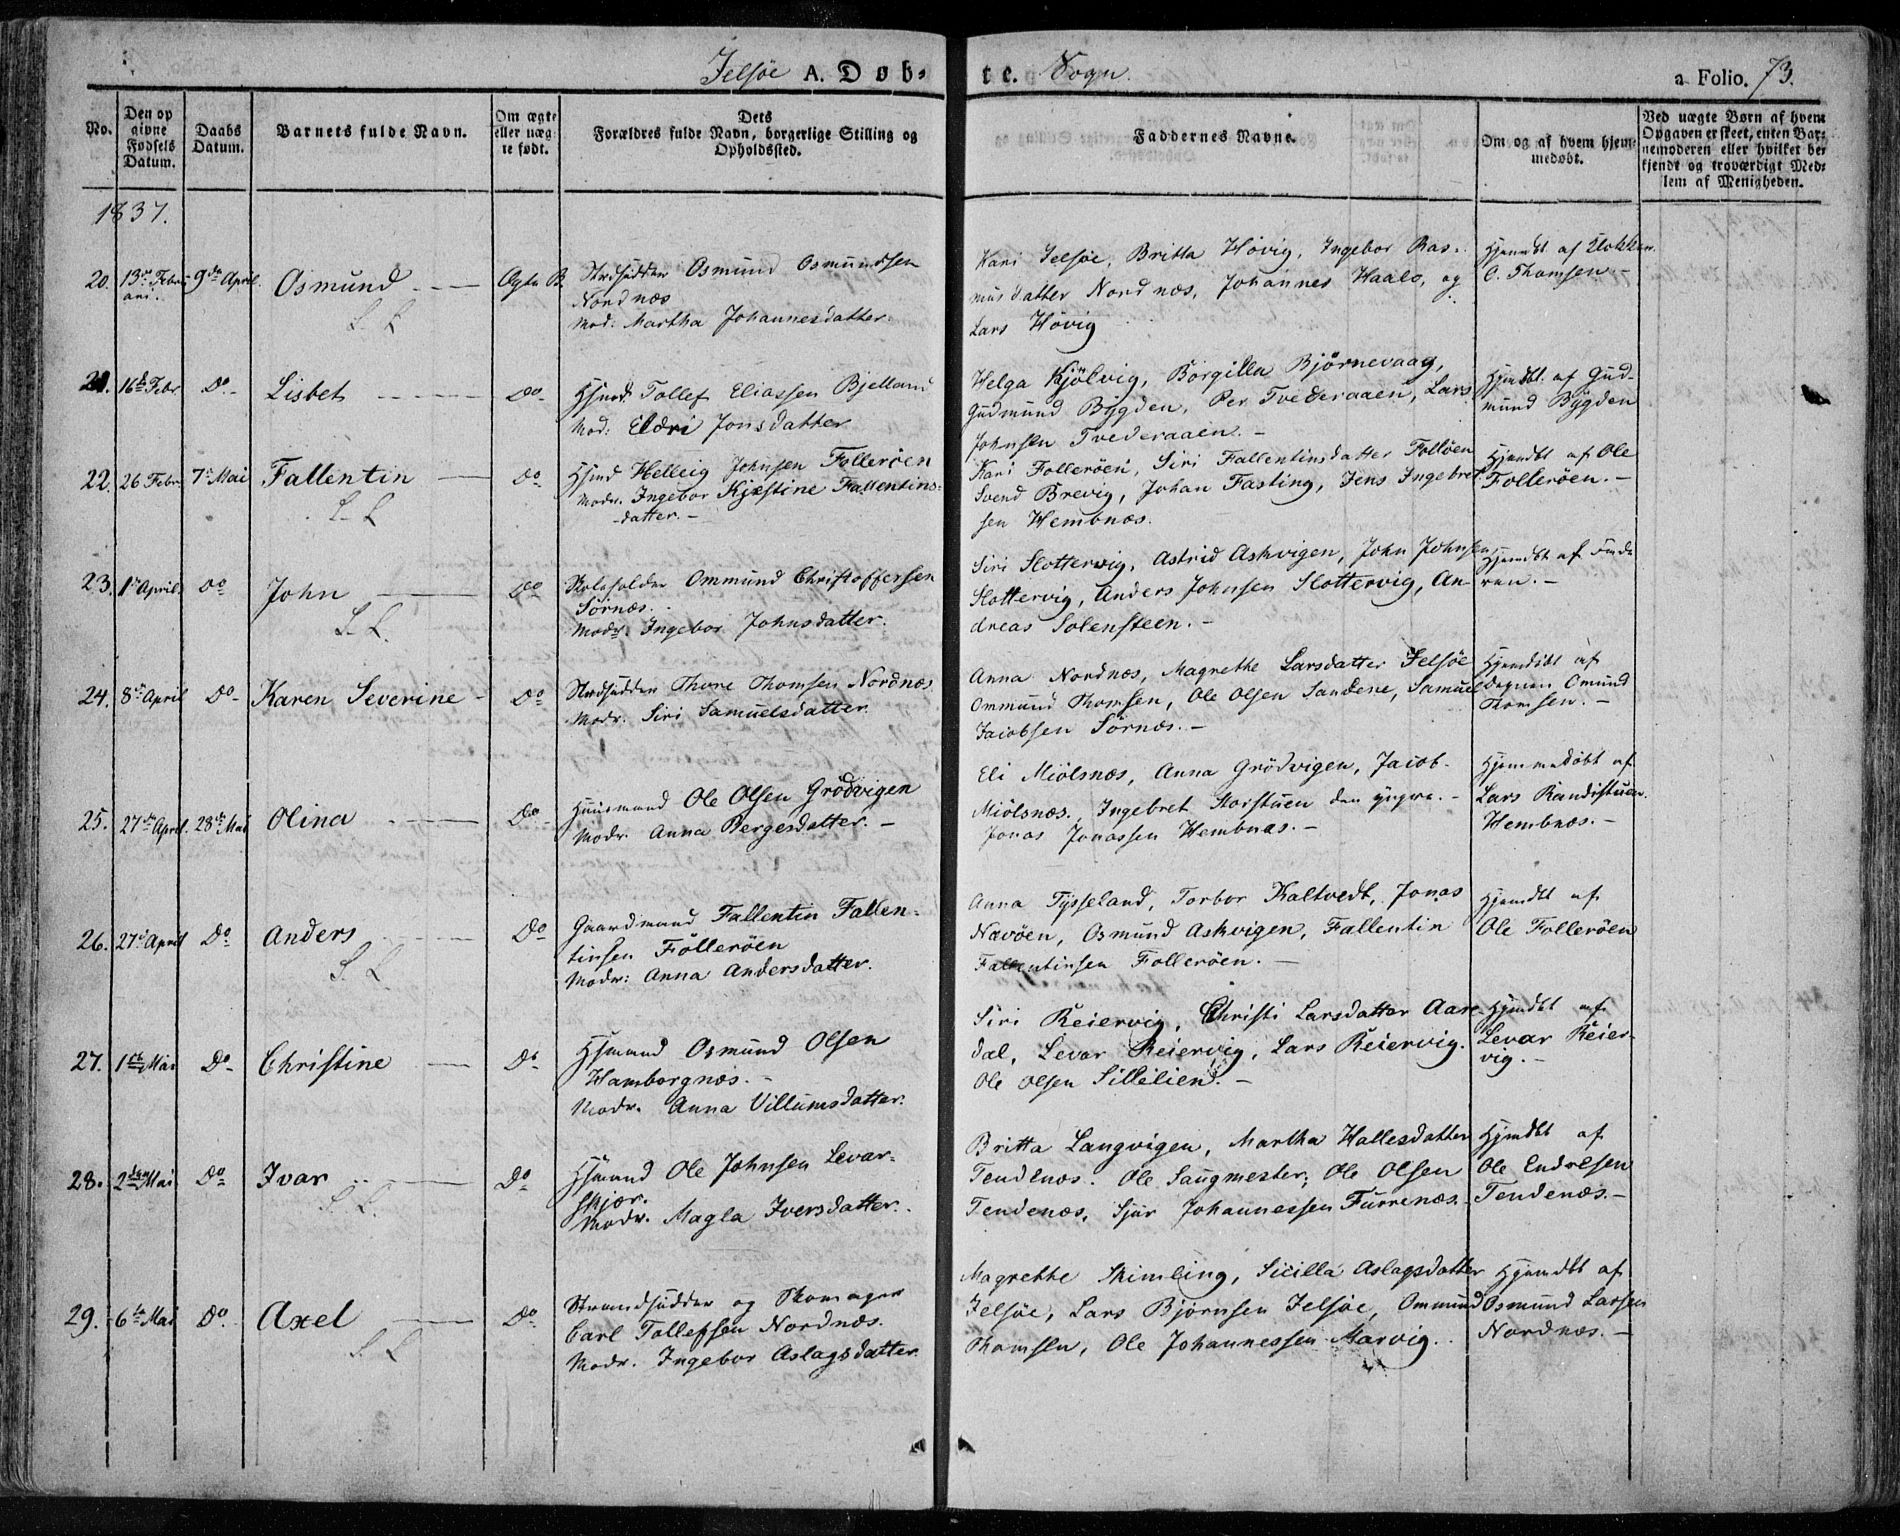 Jelsøe A. Døbte. Sogn. a Folio. 73.
No.
Den opgivne Fødsels Datum.
Daabs Datum.
Barnets fulde Navn.
Om ægte eller uægte født.
Dets Forældres fulde Navn, borgerlige Stilling og Opholdssted.
Faddernes Navne.
Om og af hvem hjemmedøbt.
Ved uægte Børn af hvem Opgaven er skeet, enten Barnemoderen eller hvilket bekjendt og troværdigt Medlem af Menigheden.
1837.
20. 13de Februari. 9de April. Osmund
S. L
Ægte B.
Strdsidder Osmund Osmundsen
Nordnæs
Mod: Martha Johannesdatter
Kari Jelsøe, Britta Hövig, Ingebor Ras-
musdatter Nordnæs, Johannes Haalo, og
Lars Hövig
Hjemdbt af Klokker
C. Thomsen -
21. 16de Febr. Do- Lisbet Do-
Hsmd: Tollef Eliassen Bjelland
Mod: Eldri Jonsdatter
Helga Kjölvig, Borgilla Bjørnevaag,
Gudmund Bygden, Per Tvederaaen, Lars
Johnsen Tvederaaen. -
Hjemdbt. af Gud-
mund Bygden
22. 26 Febr. 7de Mai Fallentin Do
S. L
Hsmd Helleig Johnsen Follerøen
Modr. Ingebor Kjestine Fallentins-
-datter. -
Kari Follerøen, Siri Fallentinsdatter Folløen
Svend Brevig, Johan Fasting, Jens Ingebret-
sen Hembnæs.
Hjemdbt af Ole
Follerøen. -
23. 1ste April Do John Do
S. L.
Skoleholder Ommund Christoffersen
Sörnæs.
Modr. Ingebor Johnsdatter.
Siri Slottervig, Astrid Askvigen, John Johnsen
Slottervig, Anders Johnsen Slottervig, An-
dreas Solensteen. -
Hjemdbt af Fade-
ren. -
24. 8de April Do- Karen Severine - Do
Strdsidder Thore Thomsen Nordnæs
Modr. Siri Samuelsdatter.
Anna Nordnæs, Magrethe Larsdatter Jelsøe
Ommund Thomsen, Ole Olsen Sandene, Samuel
Jacobsen Sörnæs. -
Hjemdöbt af
Degnen Omund
Thomsen. -
25. 27de April. 28de Mai Olina Do-
Huusmand Ole Olsen Grödvigen
Modr. Anna Bergesdatter. -
Eli Miölsnæs, Anna Grödvigen, Jacob
Miölsnæs. Ingebret Storstuen den yngre. -
Jonas Jonassen Hembnæs. -
Hjemmedøbt af
Lars Randistuen
Hembnæs. -
26. 27de April Do Anders Do
S. L
Gaardmand Fallentin Fallen-
tinsen Follerøen
Modr: Anna Andersdatter.
Anna Tysseland, Torbor Kaltvedt, Jonas
Navöen, Osmund Askvigen, Fallentin
Fallentinsen Follerøen. -
Hjemdbt af
Ole Follerøen
27. 1ste Mai Do- Christine Do
Hsmand Osmund Olsen
Hamborgnæs. -
Modr. Anna Villumsdatter.
Siri Reiervig, Christi Larsdatter Aare-
dal, Levar Reiervig, Lars Reiervig.
Ole Olsen Sillelien. -
Hjemdbt af
Levar Reier-
vig. -
28. 2den Mai Do Ivar Do
S. L.
Hsmand Ole Johnsen Levar-
skjær.
Modr. Magla Iversdatter.
Britta Langvigen, Martha Hallesdatter
Tendenæs. Ole Saugmester, Ole Olsen
Tendenæs, Sjur Johannessen Furrenæs. -
Hjemdbt af
Ole Endresen
Tendenæs. -
29. 6te Mai Do. Axel Do
S. L
Strandsidder og Skomager
Carl Tollefsen Nordnæs.
Modr. Ingebor Aslagsdatter
Magrethe Skimling, Sicilla Aslagsdatter
Jelsøe, Lars Bjørnsen Jelsøe, Ommund
Thomsen, Ole Johannessen Marvig.
Hjemdbt af
Osmund Larsen
Nordnæs. -